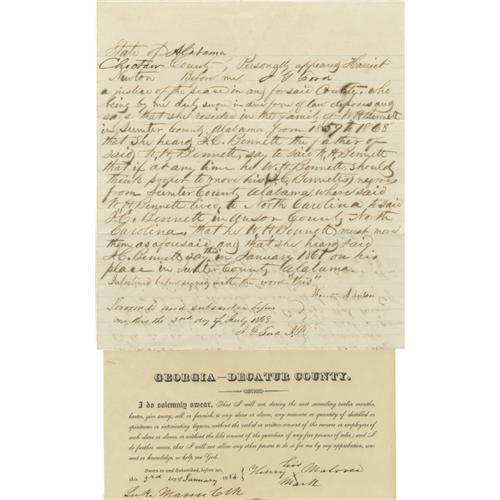 State of Alabama
Choctaw County, Personally appeared Harriet
Newton Before me J G Ford
a justice of the peace in and for said County, who
being by me duly sworn in due form of law deposes and
says that she resided in the family of W H Bennett
in Sumter County, Alabama from 1857 to 1868
that she heard J. C. Bennett the father of
said W. H. Bennett, say to said W. H. Bennett
that if at any time he W. H. Bennett, should
think proper to move his (J. C. Bennetts) negroes
from Sumter County Alabama, where said
W. H. Bennett lived, to North Carolina to said
J. C. Bennett in Anson County North
Carolina, that he W H Bennett must move
them as aforesaid, and that she heard said
J. C. Bennett say this in January 1861 on his
place in Sumter County Alabama.
Interlined before signed with the word "this"
Newton
Sworn to and subscribed before
me this the 2nd day of July 1869
J. G. Ford J.P.
GEORGIA—DECATUR COUNTY.
I do solemnly swear, That I will not, during the next succeeding twelve months,
barter, give away, sell or furnish, to any slave or slaves, any measure or quantity of distilled or
spirituous or intoxicating liquors, without the verbal or written consent of the owners or employers of
such slave or slaves, or without the like consent of the guardian of any free persons of color; and I do
further swear, that I will not allow any other person to do so for me by my approbation, con-
sent or knowledge, so help me God.
Sworn to and Subscribed, before me,
this 3rd day of January 185
Henry his
mark
Luke Mann Clk